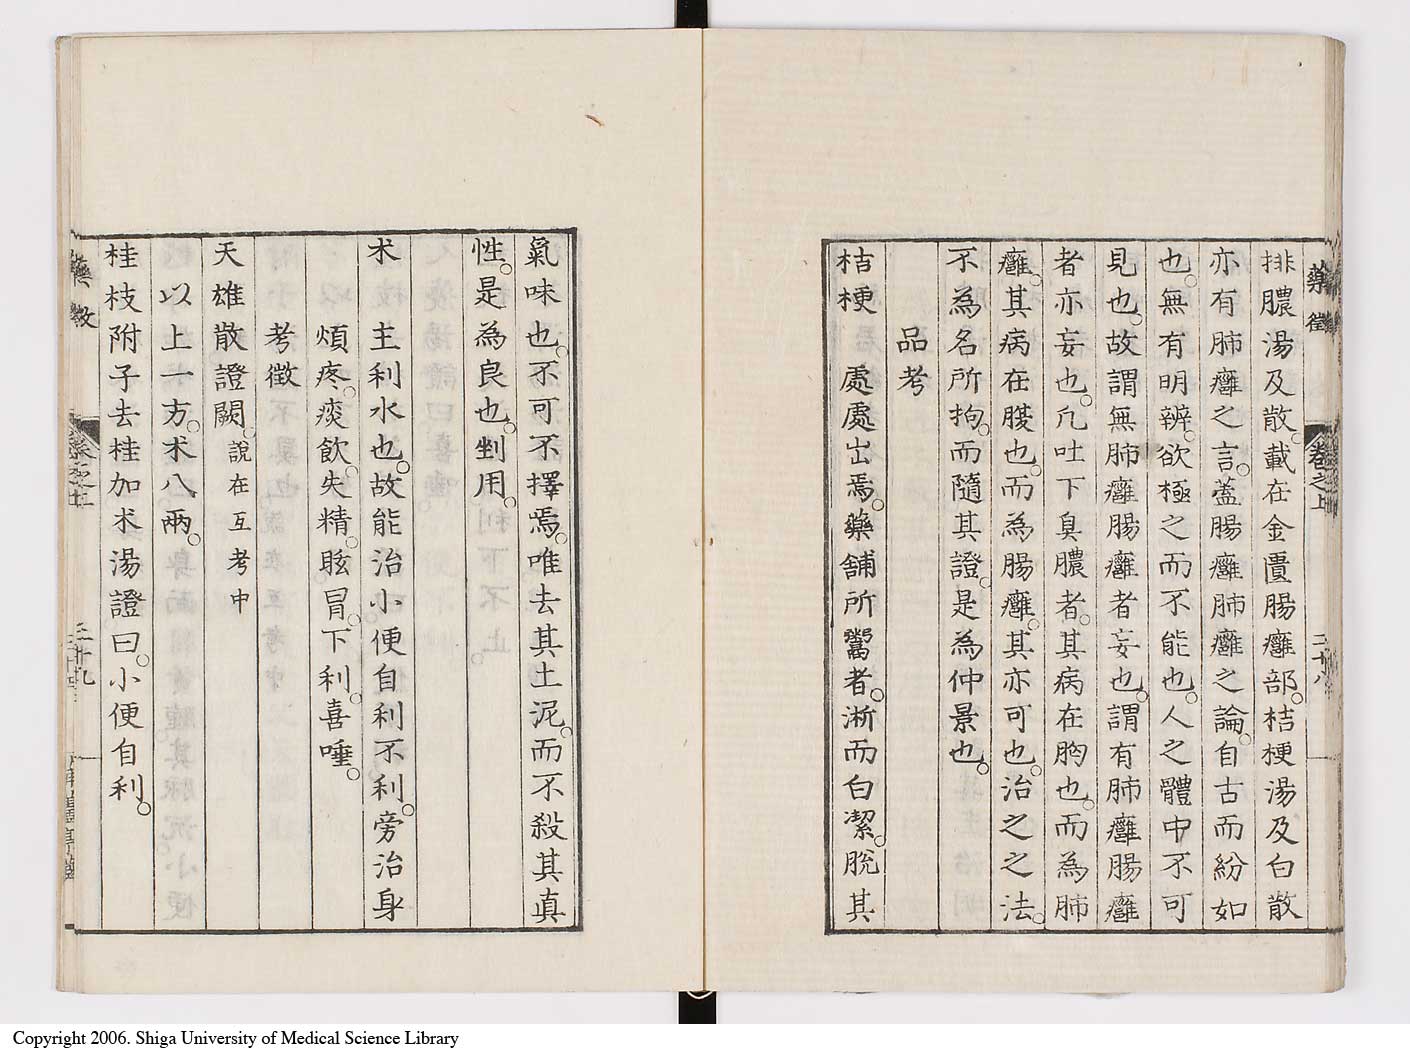 藥徵 卷之上 二十八
排膿湯及散。載在金匱腸癰部。桔梗湯及白散
亦有肺癰之言。蓋腸癰肺癰之論。自古而紛如
也。無有明辨。欲極之而不能也。人之體中不可
見也。故謂無肺癰腸癰者妄也。謂有肺癰腸癰
者亦妄也。凡吐下臭膿者。其病在胸也。而為肺
癰。其病在腹也。而為腸癰。其亦可也。治之之法。
不為名所拘。而隨其證。是為仲景也。
品考
桔梗 處處出焉。藥舖所鬻者。淅而白潔。脫其
氣味也。不可不擇焉。唯去其土泥。而不殺其真
性。是為良也。剉用。
朮 主利水也。故能治小便自利不利。旁治身
煩疼。痰飲。失精。眩冒。下利。喜唾。
考徵
天雄散證闕。說在互考中
以上一方。朮八兩。
桂枝附子去桂加朮湯證曰。小便自利。
Copyright 2006. Shiga University of Medical Science Library